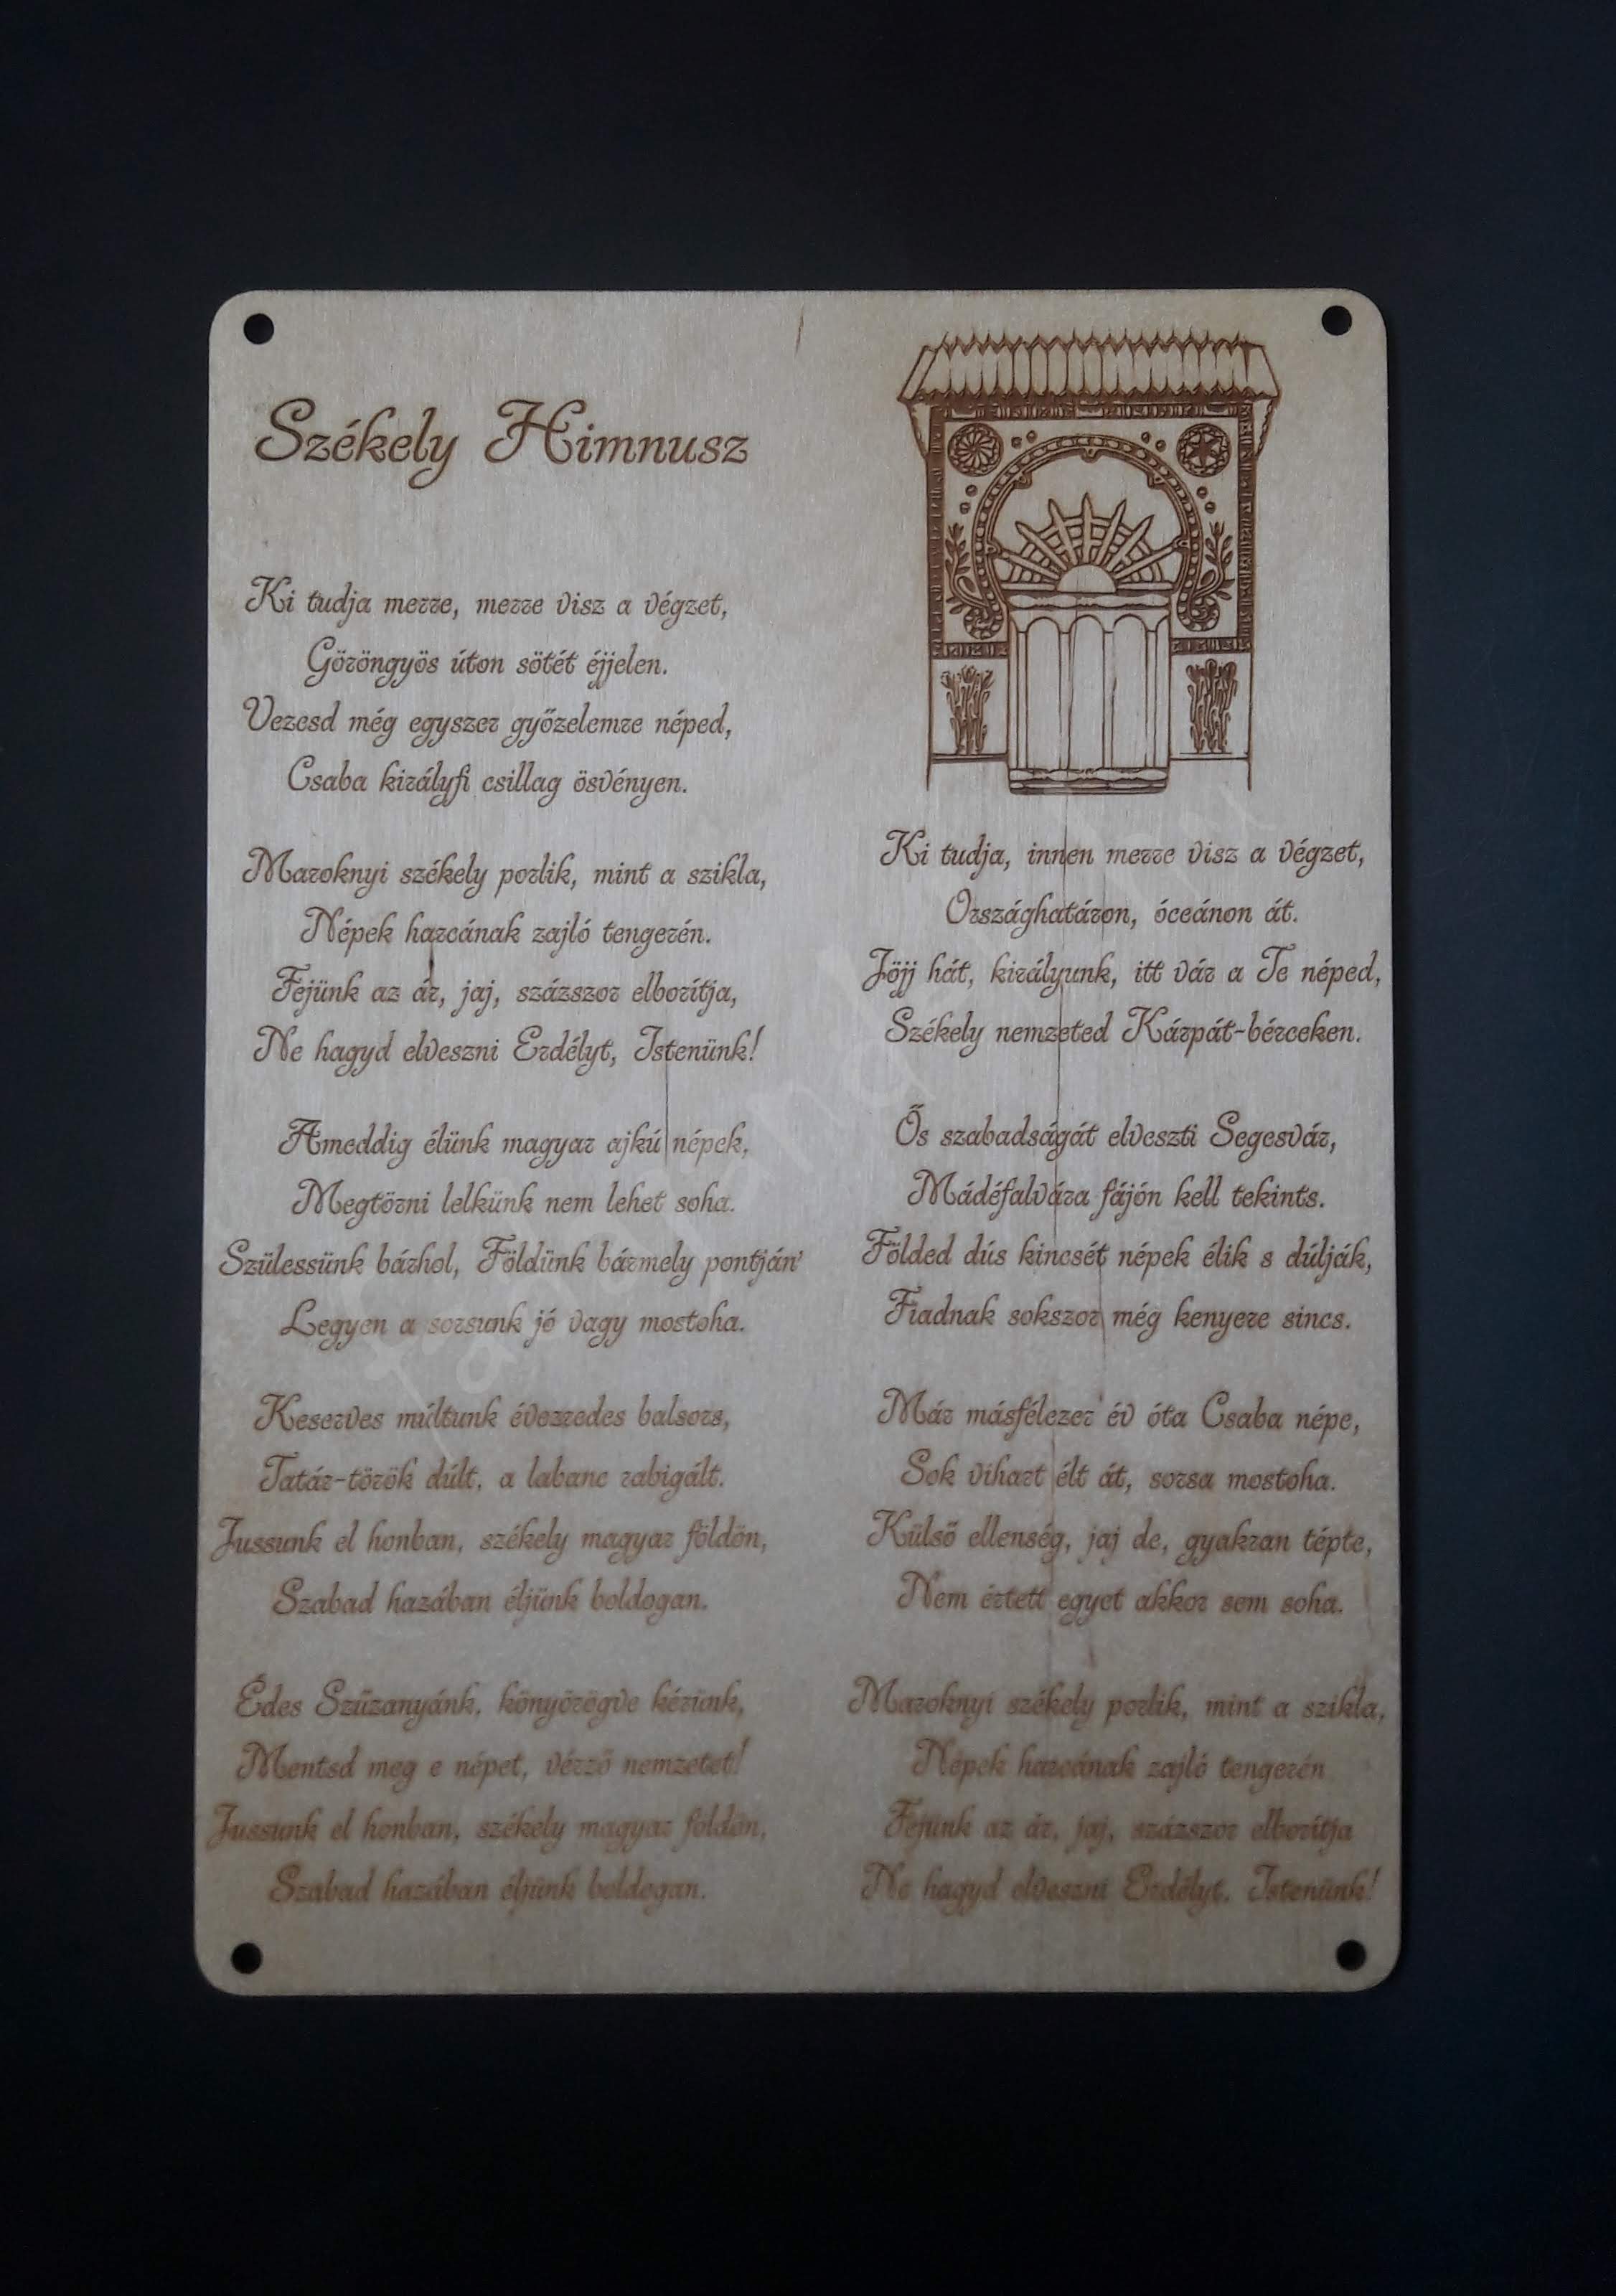 Székely Himnusz
Ki tudja merre, merre visz a végzet,
Göröngyös úton sötét éjjelen.
Vezesd még egyszer győzelemre néped,
Csaba királyfi csillag ösvényen.
Maroknyi székely porlik, mint a szikla,
Népek harcának zajló tengerén.
Fejünk az ár, jaj, százszor elborítja,
Ne hagyd elveszni Erdélyt, Istenünk!
Ameddig élünk magyar ajkú népek,
Megtörni lelkünk nem lehet soha.
Szülessünk bárhol, Földünk bármely pontján'
Legyen a sorsunk jó vagy mostoha.
Keserves múltunk évezredes balsors,
Tatár-török dúlt, a labanc rabigált.
Jussunk el honban, székely magyar földön,
Szabad hazában éljünk boldogan.
Édes Szűzanyánk, könyörögve kérünk,
Mentsd meg e népet, vérző nemzetet!
Jussunk el honban, székely magyar földön,
Szabad hazában éljünk boldogan.
Ki tudja, innen merre visz a végzet,
Országhatáron, óceánon át.
Jöjj hát, királyunk, itt vár a Te néped,
Székely nemzeted Kárpát-bérceken.
Ős szabadságát elveszti Segesvár,
Mádéfalvára fájón kell tekints.
Földed dús kincsét népek élik s dúlják,
Fiadnak sokszor még kenyere sincs.
Már másfélezer év óta Csaba népe,
Sok vihart élt át, sorsa mostoha.
Külső ellenség, jaj de, gyakran tépte,
Nem értett egyet akkor sem soha.
Maroknyi székely porlik, mint a szikla,
Népek harcának zajló tengerén
Fejünk az ár, jaj, százszor elborítja
Ne hagyd elveszni Erdélyt, Istenünk!